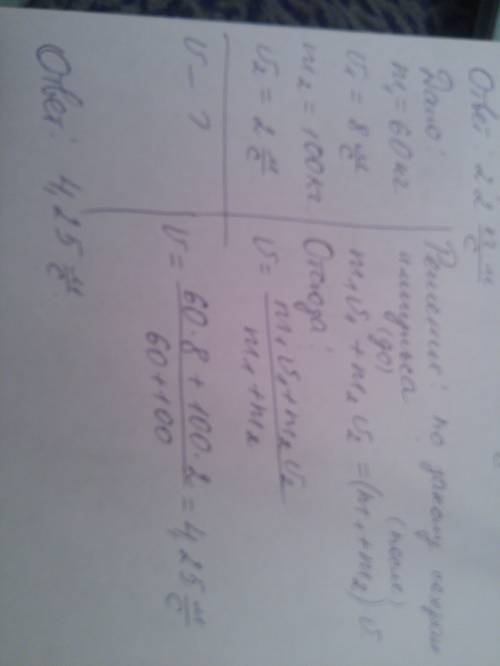 Ответ: 22
Дано:
m₁ = 60 кг
v₁ = 8 м/с
m₂ = 100 кг
v₂ = 2 м/с
v – ?
Решение: по закону сохран
импульса
(до) (после)
m₁v₁ + m₂v₂ = (m₁ + m₂) v
Отсюда:
v = m₁v₁ + m₂v₂ / m₁ + m₂
v = 60·8 + 100·2 / 60 + 100 = 4,25 м/с
Ответ: 4,25 м/с